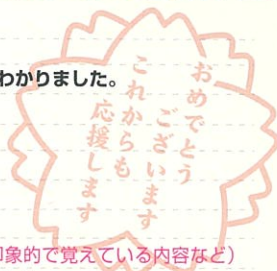 わかりました。
おめでとう
ございます
これからも
応援します
象的で覚えている内容など）